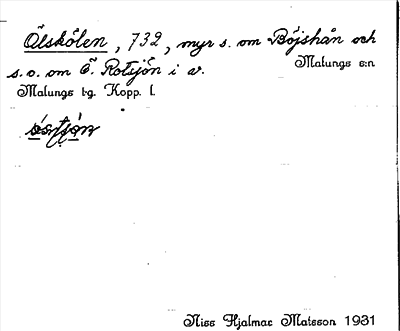 Ölskölen, 732, myr s. om Böjshån och
s.o. om Ö. Rotsjön i v. Malungs s:n
Malungs t:g. Kopp. l.
Niss Hjalmar Matsson 1931